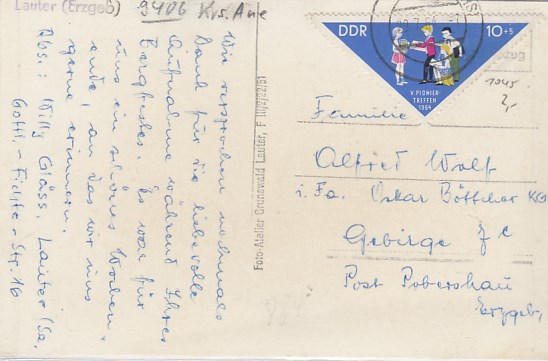 Lauter (Erzgeb)
9406 Krs. Aue
Wir versprechen nochmals
Dank für die liebevolle
Aufnahme während Ihres
Bergfestes. Es war für
uns ein schönes Wochen-
ende, an das wir uns
gerne erinnern.
Abs.: Willy Gläss, Lauter/Sa.
Gottl.-Fichte-Str. 16
Foto-Atelier Grunewald Lauter, F III/2/22/61
DDR 10+5
V. PIONIER-
TREFFEN
1964
1045
2,-
Familie
Alfred Wolf
i. Fa. Oskar Böttcher KG
Gebirge 7c
Post Pobershau
Erzgeb.